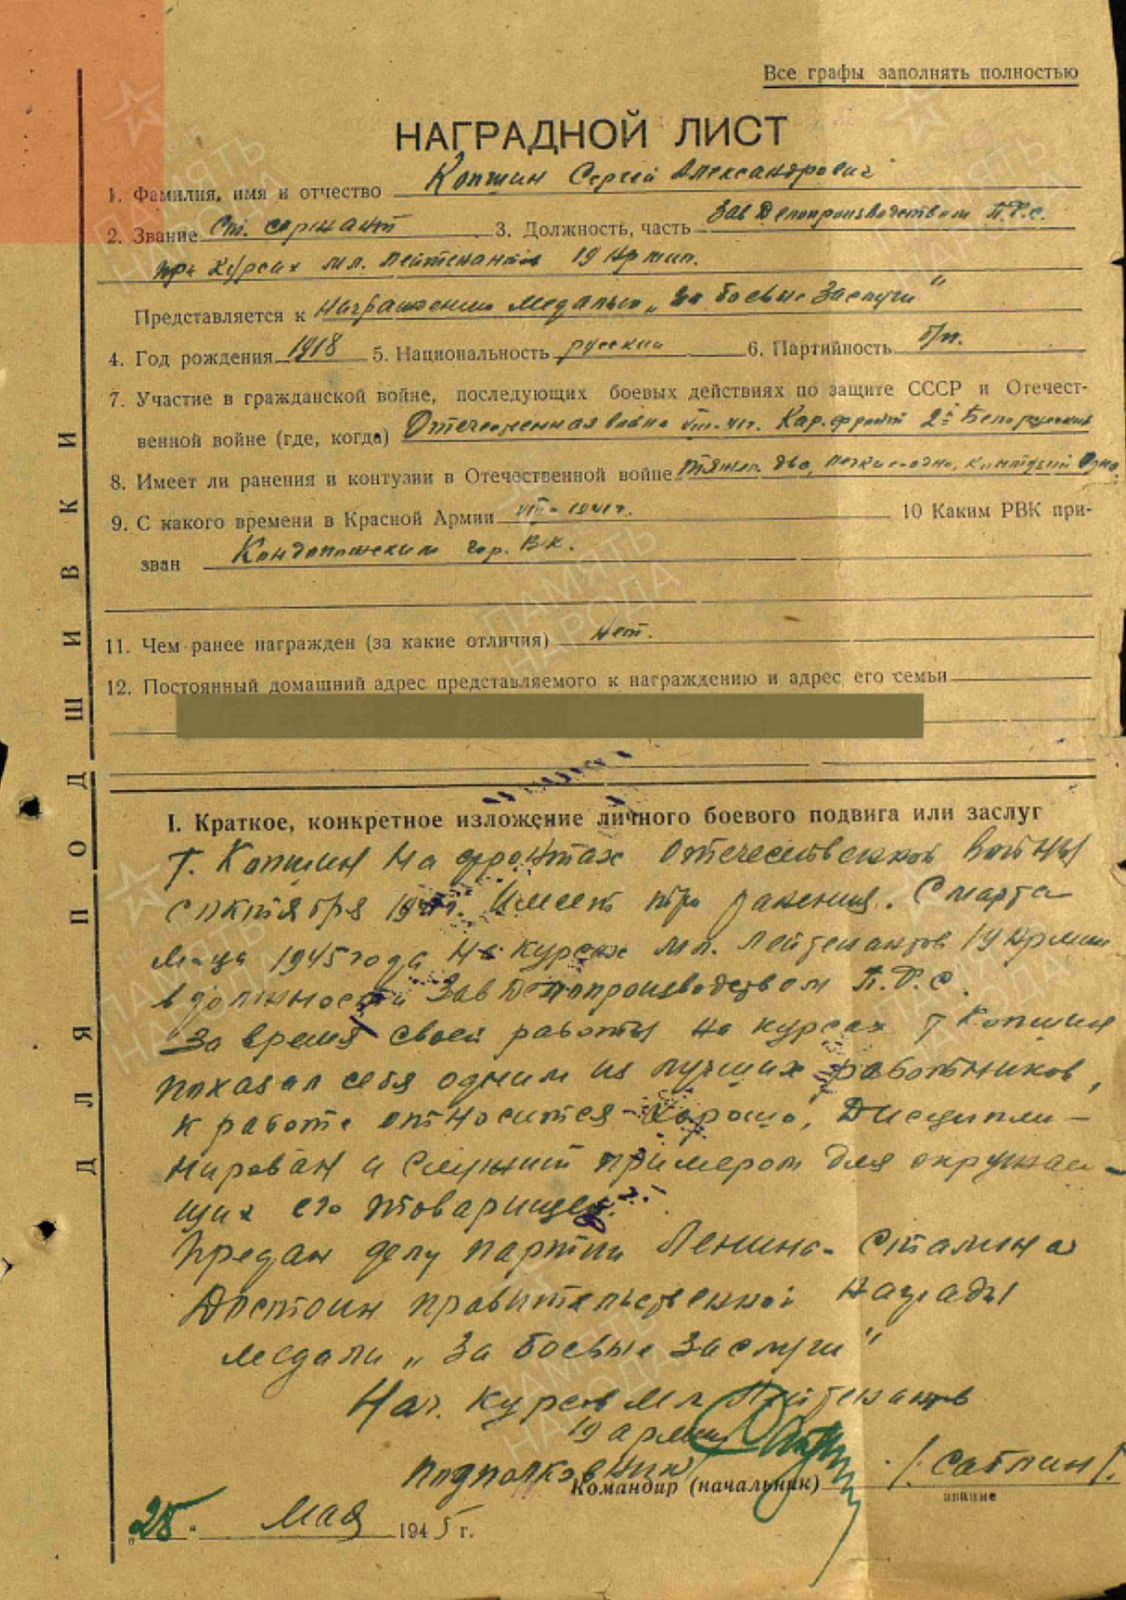 Все графы заполнять полностью
НАГРАДНОЙ ЛИСТ
1. Фамилия, имя и отчество Копшин Сергей Александрович
2. Звание Ст. сержант 3. Должность, часть Зав Делопроизводством П.Ф.С.
при курсах мл. лейтенантов 19 Армии.
Представляется к Награждению медалью „За боевые заслуги"
4. Год рождения 1918 5. Национальность русский 6. Партийность б/п.
7. Участие в гражданской войне, последующих боевых действиях по защите СССР и Отечест-
венной войне (где, когда) Отечественная война VIII-41г. Кар. фронт 2й Белорусский
8. Имеет ли ранения и контузии в Отечественной войне тяжел. два, легких-одно, контузий одна
9. С какого времени в Красной Армии VIII-1941г. 10 Каким РВК при-
зван Кондопожским гор. В.К.
11. Чем ранее награжден (за какие отличия) Нет.
12. Постоянный домашний адрес представляемого к награждению и адрес его семьи
ДЛЯ ПОДШИВКИ
I. Краткое, конкретное изложение личного боевого подвига или заслуг
т. Копшин на фронтах Отечественной Войны
с октября 1941г. Имеет три ранения. С марта
м-ца 1945 года на курсах мл. лейтенантов 19 Армии
в должности Зав Делопроизводством П.Ф.С.
За время своей работы на курсах т Копшин
показал себя одним из лучших работников,
к работе относится хорошо, Дисципли-
нирован и служит примером для окружаю-
щих его товарищей.
Предан делу партии Ленина-Сталина
Достоин правительственной награды
медали „За боевые заслуги"
Нач. Курсов Мл Лейтенантов
19 армии
подполковник /Саблин/.
Командир (начальник)
звание
„25" Мая 1945 г.
ПАМЯТЬ НАРОДА